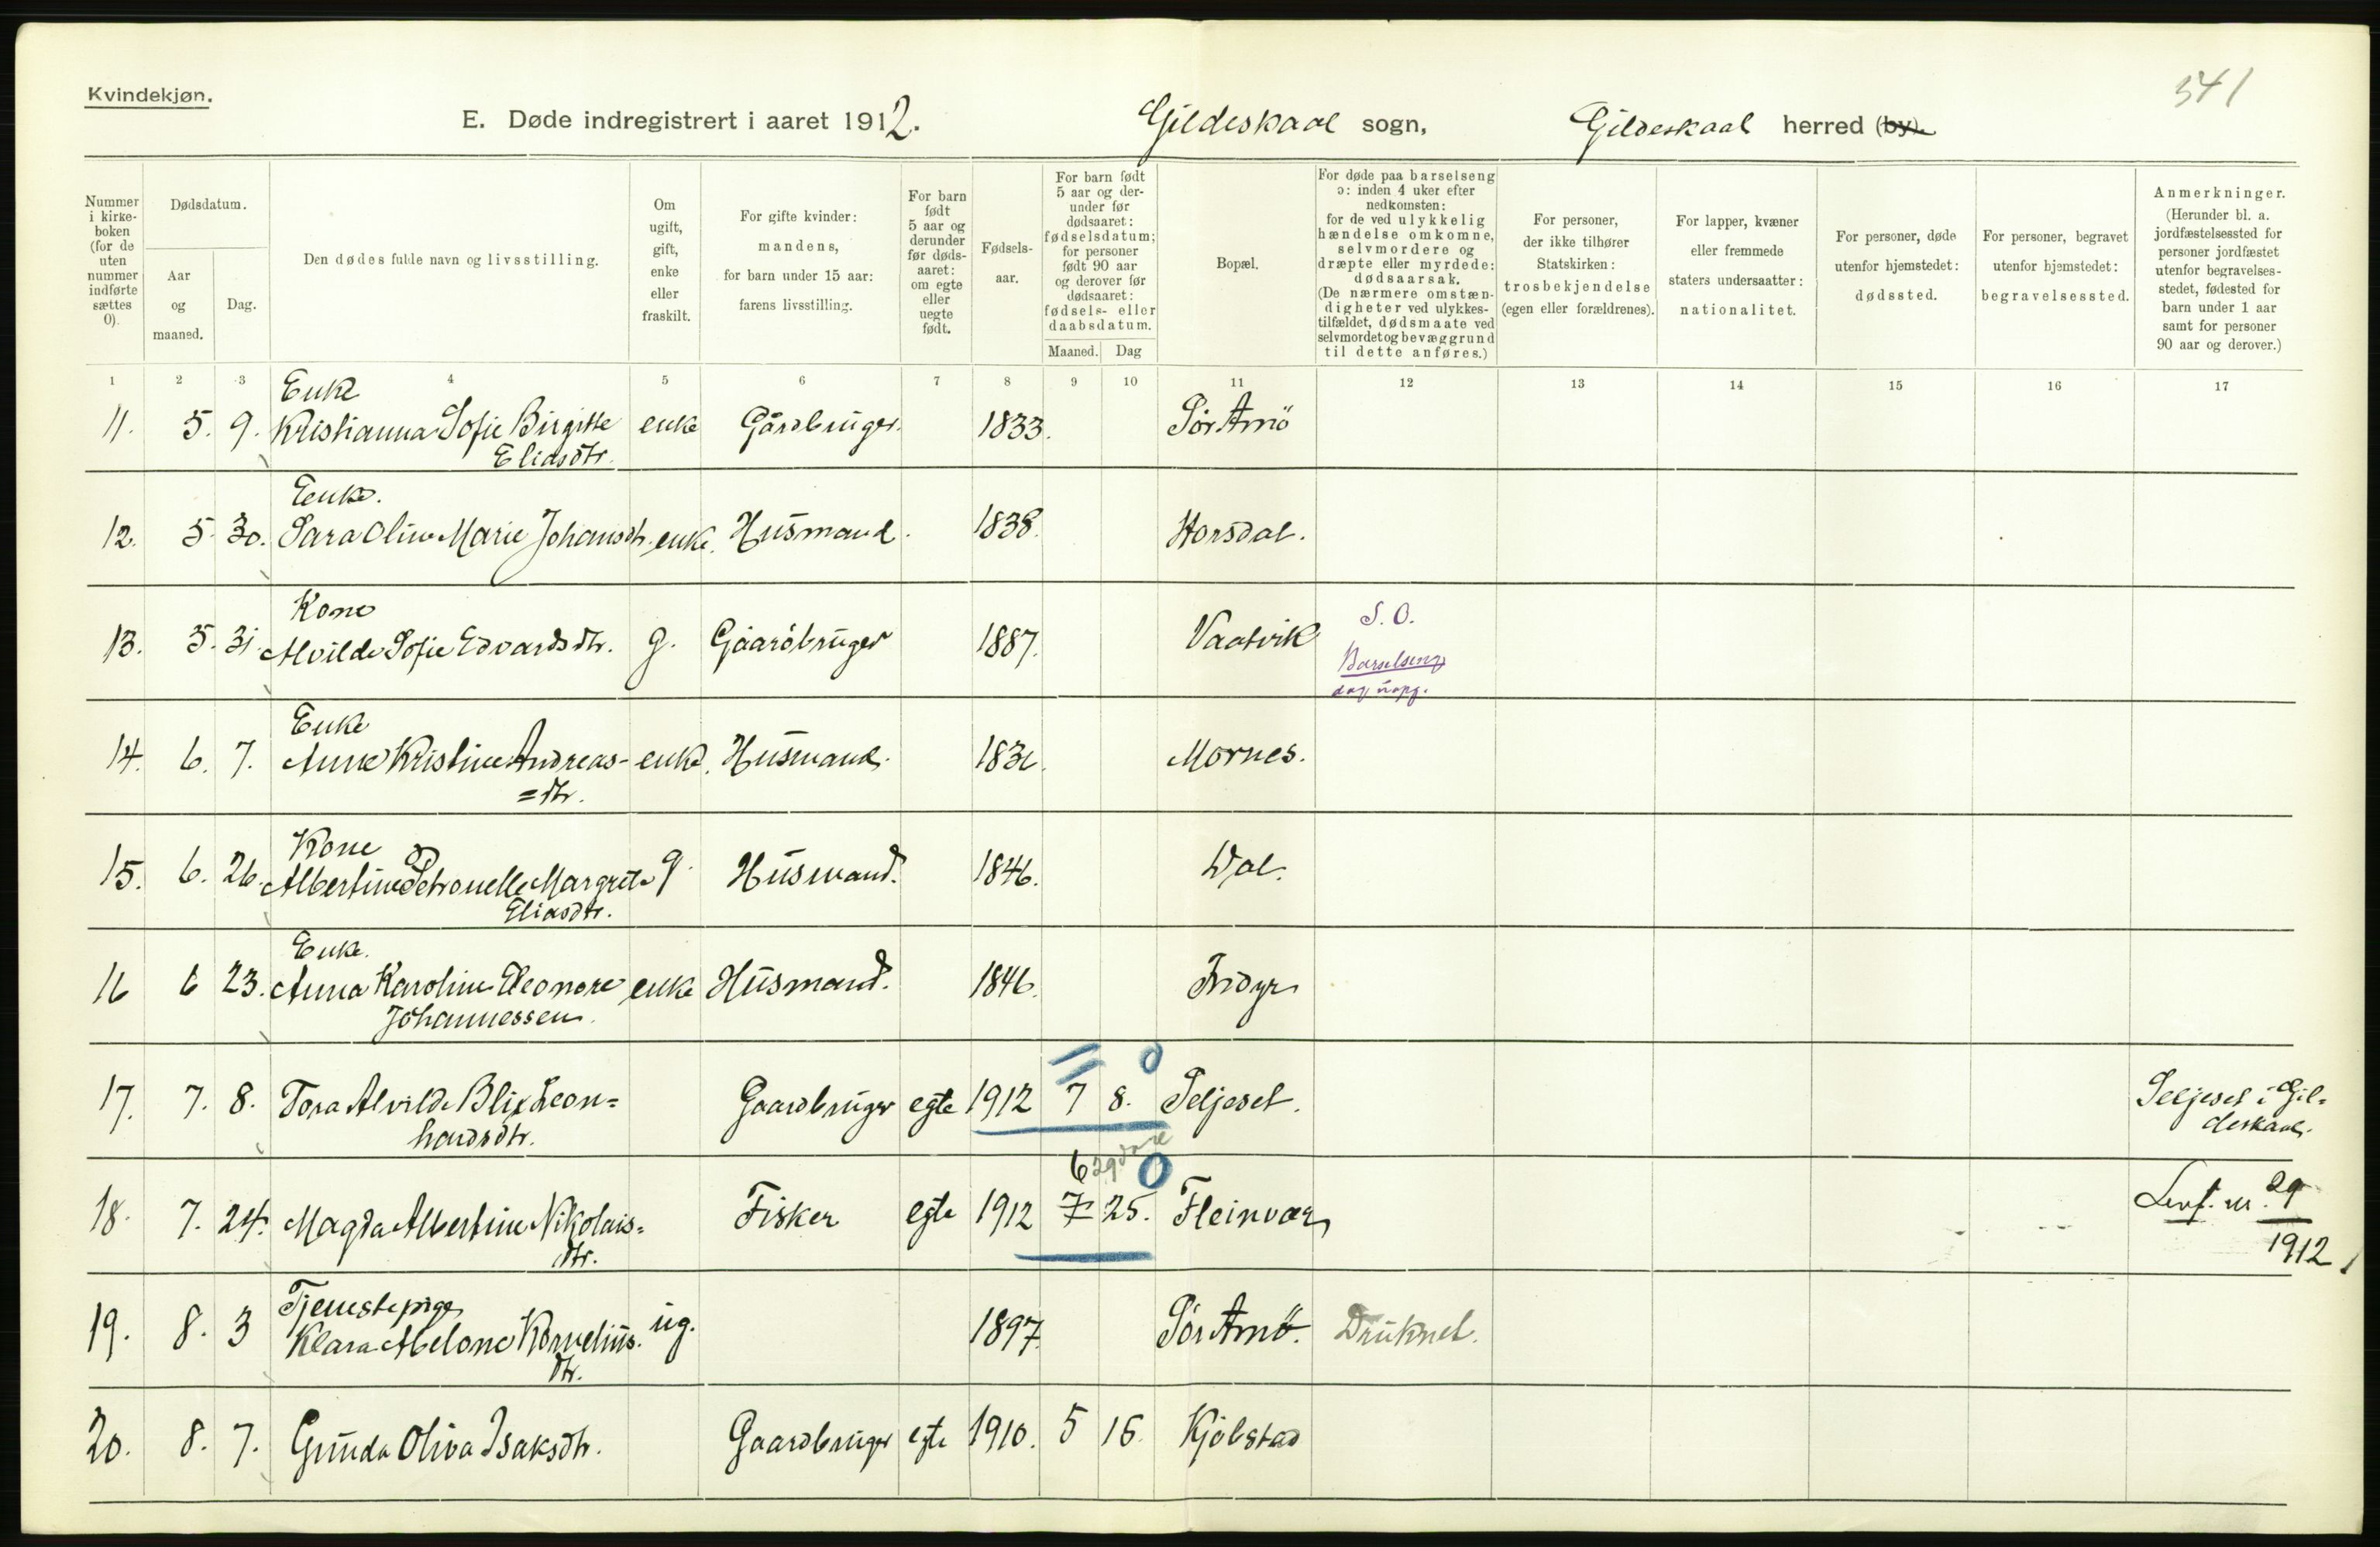 Kvindekjøn.
341
E. Døde indregistrert i aaret 1912. Gildeskaal sogn, Gildeskaal herred (by).
Nummer i kirke-boken (for de uten nummer indførte sættes 0).
Dødsdatum.
Aar og maaned.
Dag.
Den dødes fulde navn og livsstilling.
Om ugift, gift, enke eller fraskilt.
For gifte kvinder: mandens, for barn under 15 aar: farens livsstilling.
For barn født 5 aar og derunder før døds-aaret: om egte eller uegte født.
Fødsels-aar.
For barn født 5 aar og der-under før dødsaaret: fødselsdatum; for personer født 90 aar og derover før dødsaaret: fødsels- eller daabsdatum.
Maaned. Dag
Bopæl.
For døde paa barselseng ɔ: inden 4 uker efter nedkomsten: for de ved ulykkelig hændelse omkomne, selvmordere og dræpte eller myrdede: dødsaarsak. (De nærmere omstæn-digheter ved ulykkes-tilfældet, dødsmaate ved selvmordet og bevæggrund til dette anføres.)
For personer, der ikke tilhører Statskirken: trosbekjendelse (egen eller forældrenes).
For lapper, kvæner eller fremmede staters undersaatter: nationalitet.
For personer, døde utenfor hjemstedet: dødssted.
For personer, begravet utenfor hjemstedet: begravelsessted.
Anmerkninger. (Herunder bl. a. jordfæstelsessted for personer jordfæstet utenfor begravelses-stedet, fødested for barn under 1 aar samt for personer 90 aar og derover.)
1 2 3 4 5 6 7 8 9 10 11 12 13 14 15 16 17
Enke
11. 5. 9. Kristianna Sofie Birgitte enke Gårdbruger. 1833. Sør Arnö
Eliasdtr.
Enke.
12. 5. 30. Sara Oline Marie Johansdtr. enke. Husmand. 1838. Horsdal.
Kone
13. 5. 31. Alvilde Sofie Edvardsdtr. g. Gaardbruger 1887. Vaatvik S. O.
Barselseng
dag uopg.
Enke
14. 6. 7. Anne Kristine Andreas- enke. Husmand. Mornes.
=dtr.
Kone
15. 6. 26. Albertine Petronelle Margrete g. Husmand. 1846. Dal.
Eliasdtr.
Enke.
16 6 23. Anna Karoline Eleonore enke Husmand. 1846.
Johannessen.
17. 7. 8. Tora Alvilde Blix Leon= Gaardbruger egte 1912 7 8. Seljeset. Seljeset i Gil=
hardsdtr. deskaal.
6 29
18. 7. 24. Magda Albertine Nikolais= Fisker egte 1912 7 25. Fleinvær Levf. nr. 29
dtr. 1912
Tjenestepige
19. 8. 3 Klara Abelone Kornelius. ug. 1897. Sør Arnö. Druknet.
dtr.
20. 8. 7. Gunda Oliva Isaksdtr. Gaardbruger egte 1910. 5 15. Kjölstad